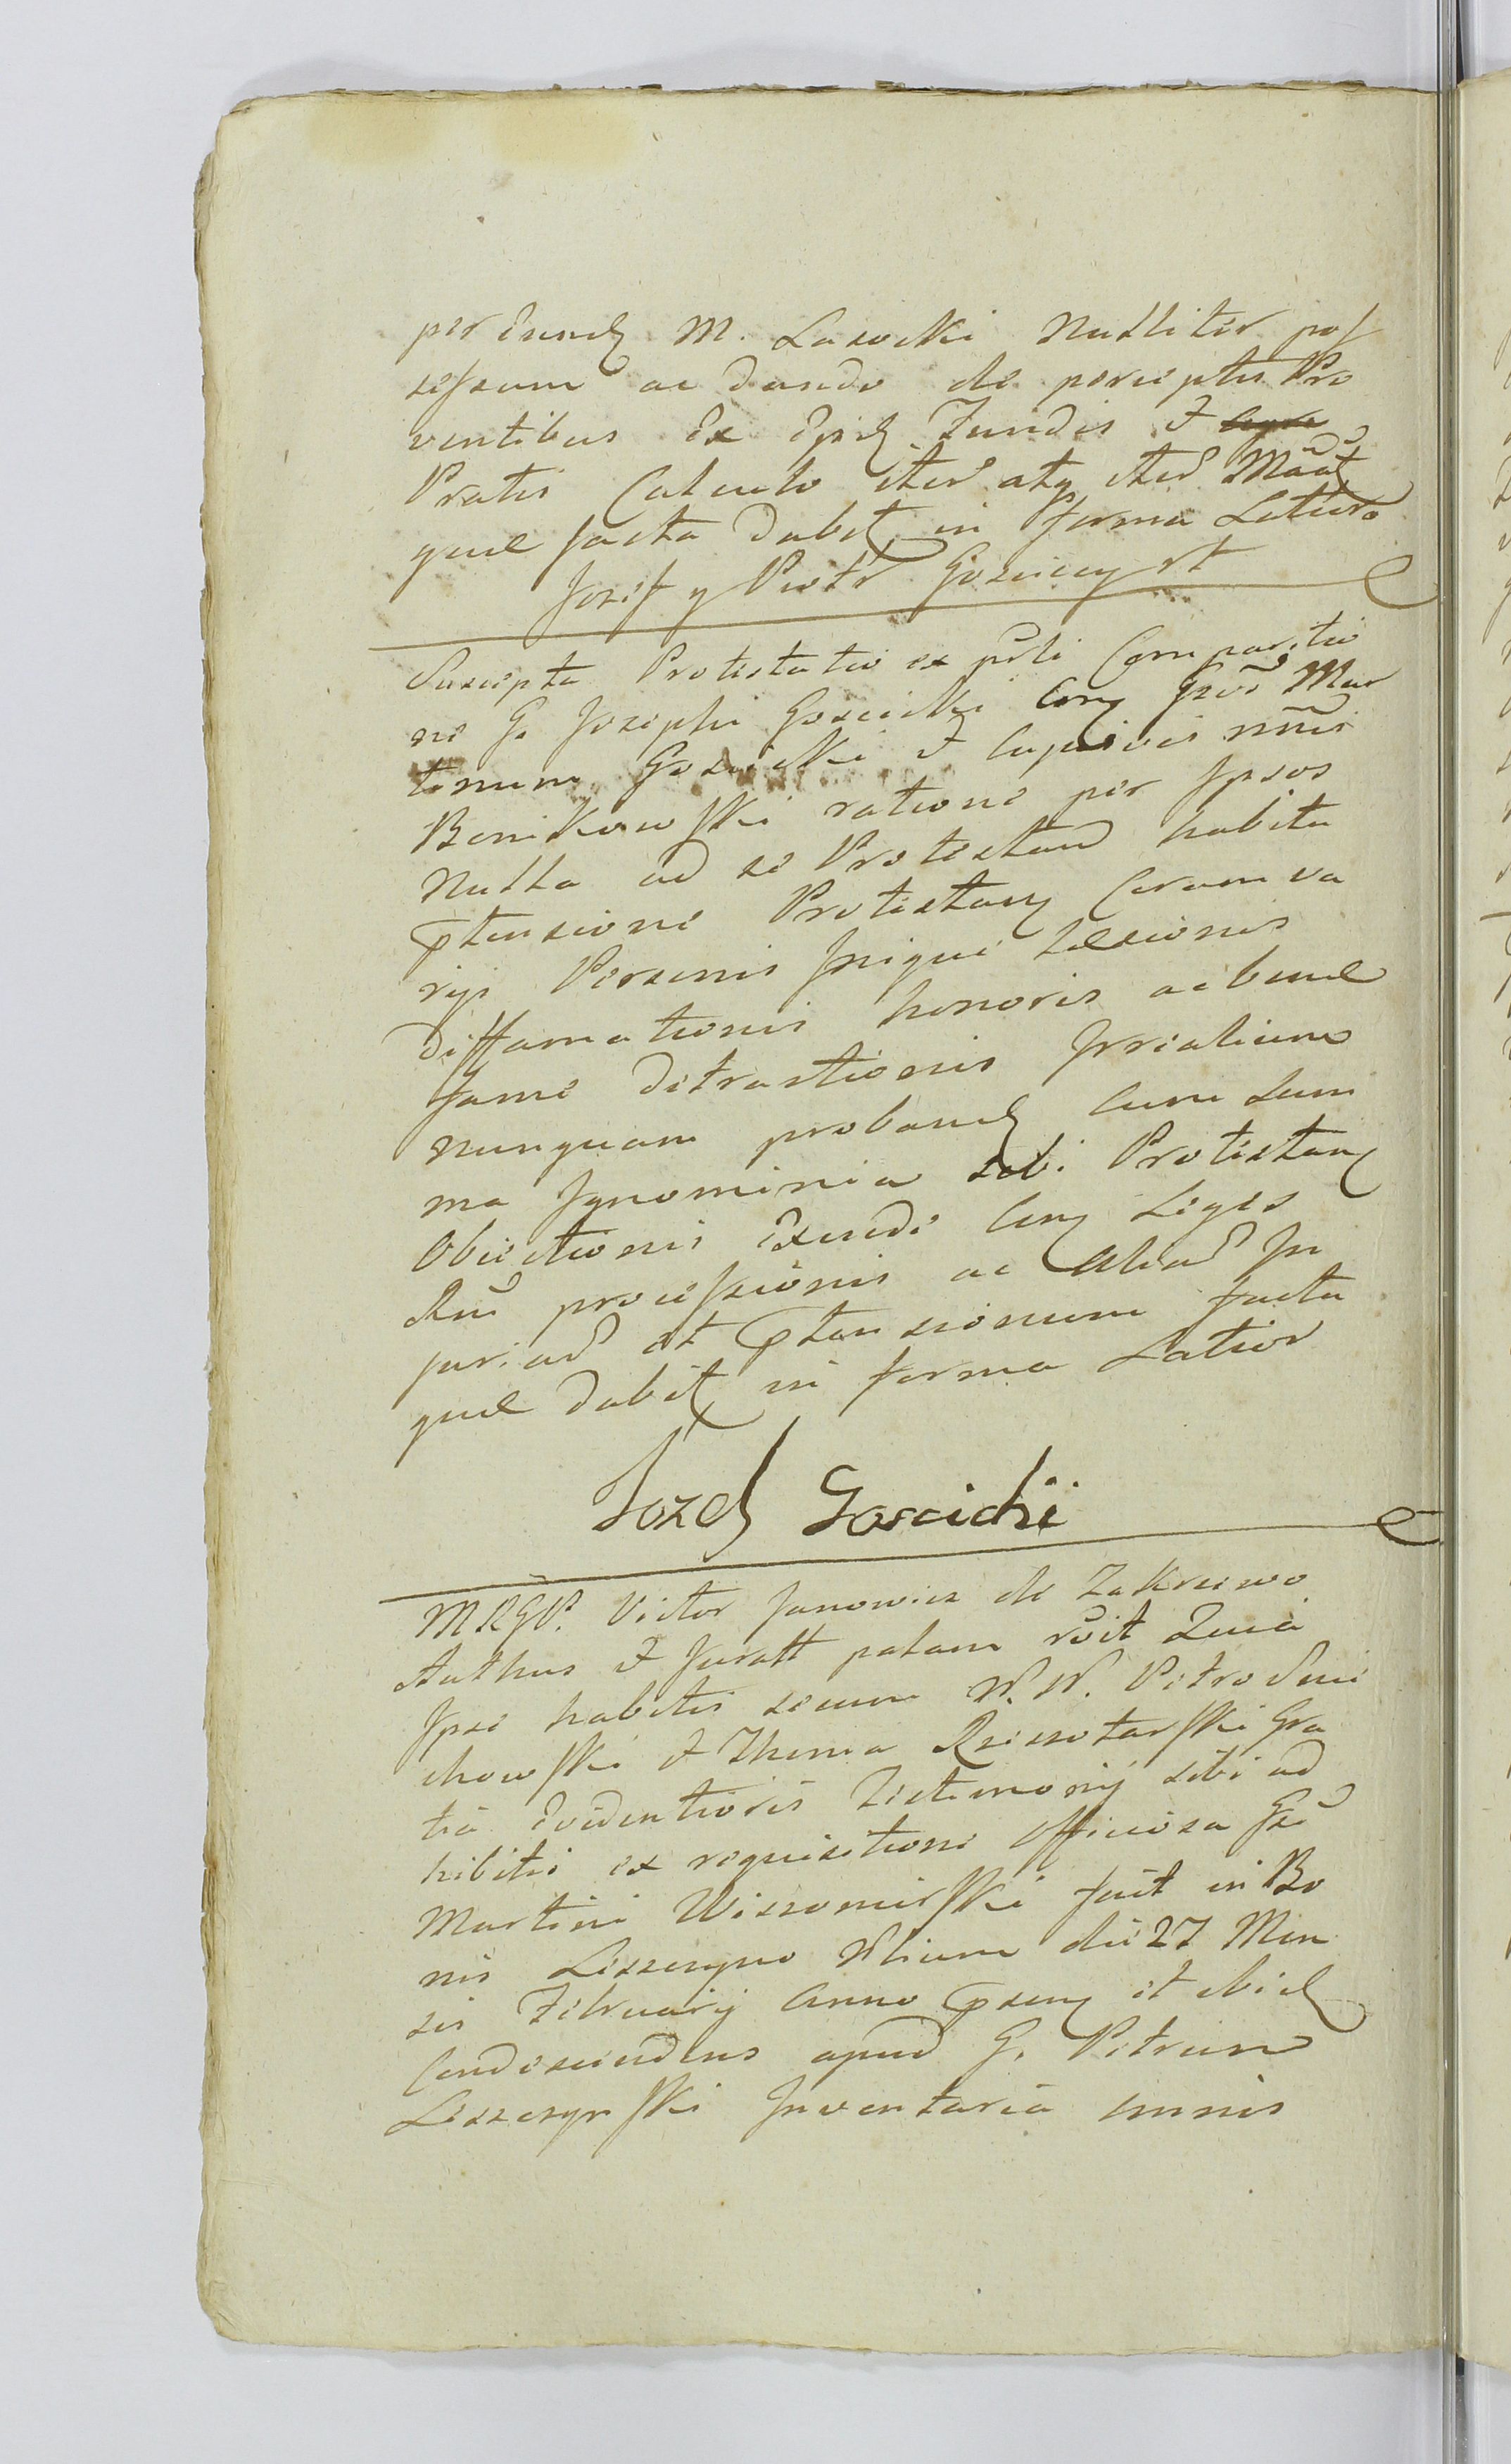 per Eund M. Lasocki Nulliter pos
sessum ac dando de perceptis Pro
ventibus Ex Ejsd Fundis et
Pratis Calculo iter atq iter Maāt
que facta dabit in forma Latiors
Jozef y Piotr Gosciccy st
Suscepta Protestatio ex pūti Comparitio
ne G. Josephi Goscicki Con Gsos Mar
tinum Goscicki et Cujusvis nmīs
Bonikowski ratione per Ipsos
Nulla ad se Protestand habita
Ptensione Protestan Coram va
rijs Personis Inique Læsionis
Diffamationis honoris ac bonæ
fame Detractionis Irrialium
nunquam proband Cum Sum
ma Ignominia sibi Protestan
Obiectionis Exinde Con Leges
Rni processionis ac Aliar In
juriar et Ptensionum facta
quæ dabit in forma Latior
Jozef Goscicki
MRGP. Victor Janowicz de Zakrzewo
Authus et Juratt palam rūit Quia
Ipse habitis secum N. N. Petro Smi
chowski et Thoma Rzeszotarski Gra
tia Evidentioris Testimonij sibi ad
hibitis ex requisitione Officiosa Gsi
Martini Wissomirski fuit in Bo
nis Leszczyno Nlium die 27 Men
sis Februarij Anno Psen et ibid
Condescendens apud G. Petrum
Leszczynski Inventaria omnis